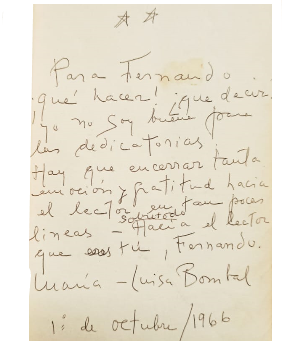 Para Fernando.
¡qué hacer! ¡que decir!
yo no soy buena para
las dedicatorias!
Hay que encerrar tanta
emoción y gratitud hacia
el lector en tan pocas
sobretodo
lineas — Hacia el lector
que eres tú, Fernando.
María-Luisa Bombal
1º de octubre/1966